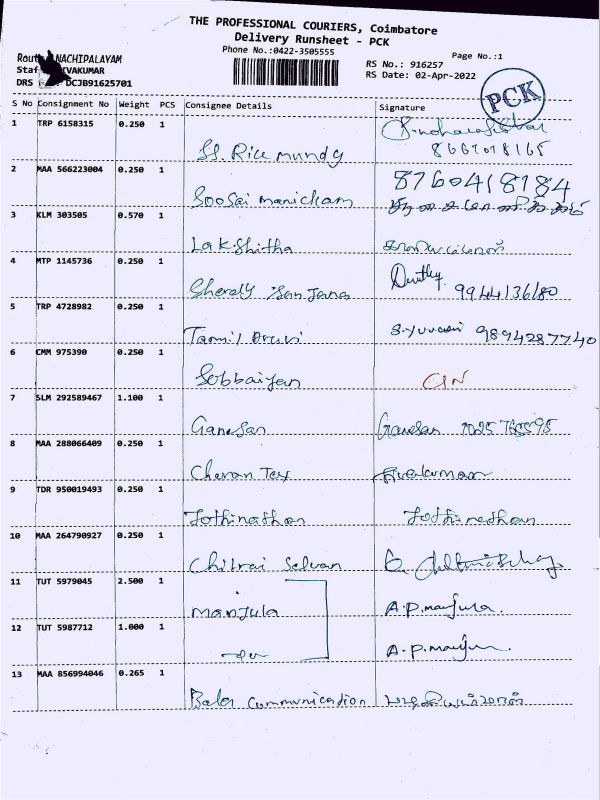 THE PROFESSIONAL COURIERS, Coimbatore
Delivery Runsheet - PCK
Phone No.:0422-3505555
Page No.:1
RS No.: 916257
RS Date: 02-Apr-2022
NACHIPALAYAM
VAKUMAR
DRS DCJB91625701
PCK
S No Consignment No Weight PCS Consignee Details Signature
1 TRP 6158315 0.250 1
SS. Rice mundy
2 MAA 566223004 0.250 1 8760418184
Soosai manickam
3 KLM 303505 0.570 1
Lakshitha
4 MTP 1145736 0.250 1
Sherely Sanjana 9944136180
5 TRP 4728982 0.250 1
Tamil 9894287740
6 CMM 975390 0.250 1
7 SLM 292589467 1.100 1
Ganesan Ganesan
8 MAA 288066409 0.250 1
Cheran Tex Sivakumar
9 TDR 950019493 0.250 1
Jothinathan Jothinathan
10 MAA 264790927 0.250 1
Chitrai Selvan
11 TUT 5979045 2.500 1
Manjula A.P.manjula.
12 TUT 5987712 1.000 1
A.P.manjula.
13 MAA 856994046 0.265 1
Bala Communication